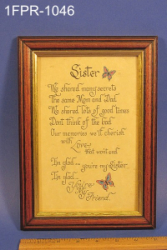 1FPR-1046
Sister
We shared many secrets
The same Mom and Dad.
We shared lots of good times
Don't think of the bad.
Our memories we'll cherish
with Love
that won't end
I'm glad... you're my Sister
I'm glad...
You're my
Friend